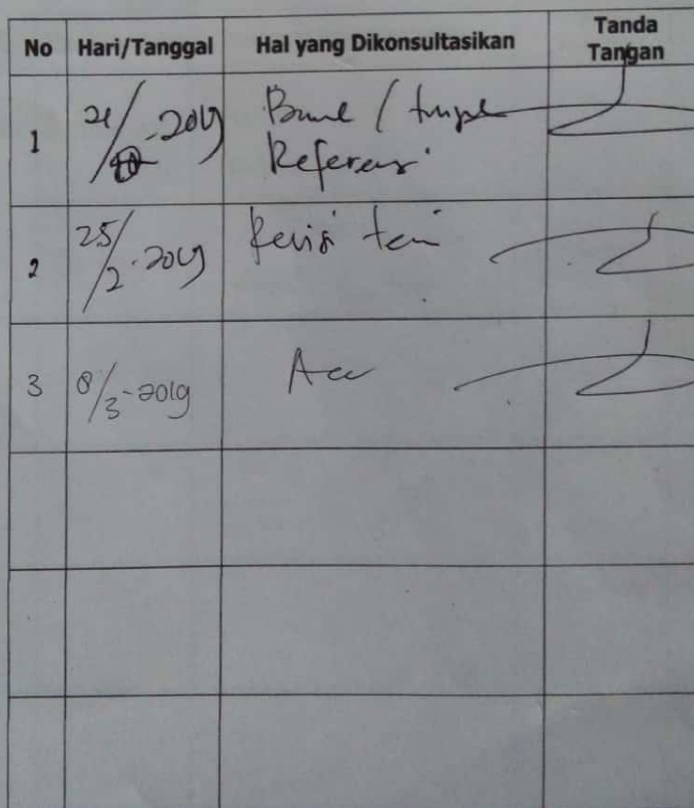 No Hari/Tanggal Hal yang Dikonsultasikan Tanda Tangan
1 21/ -2019
Referensi
2 25/2-2019 Revisi
3 8/3-2019 Acc